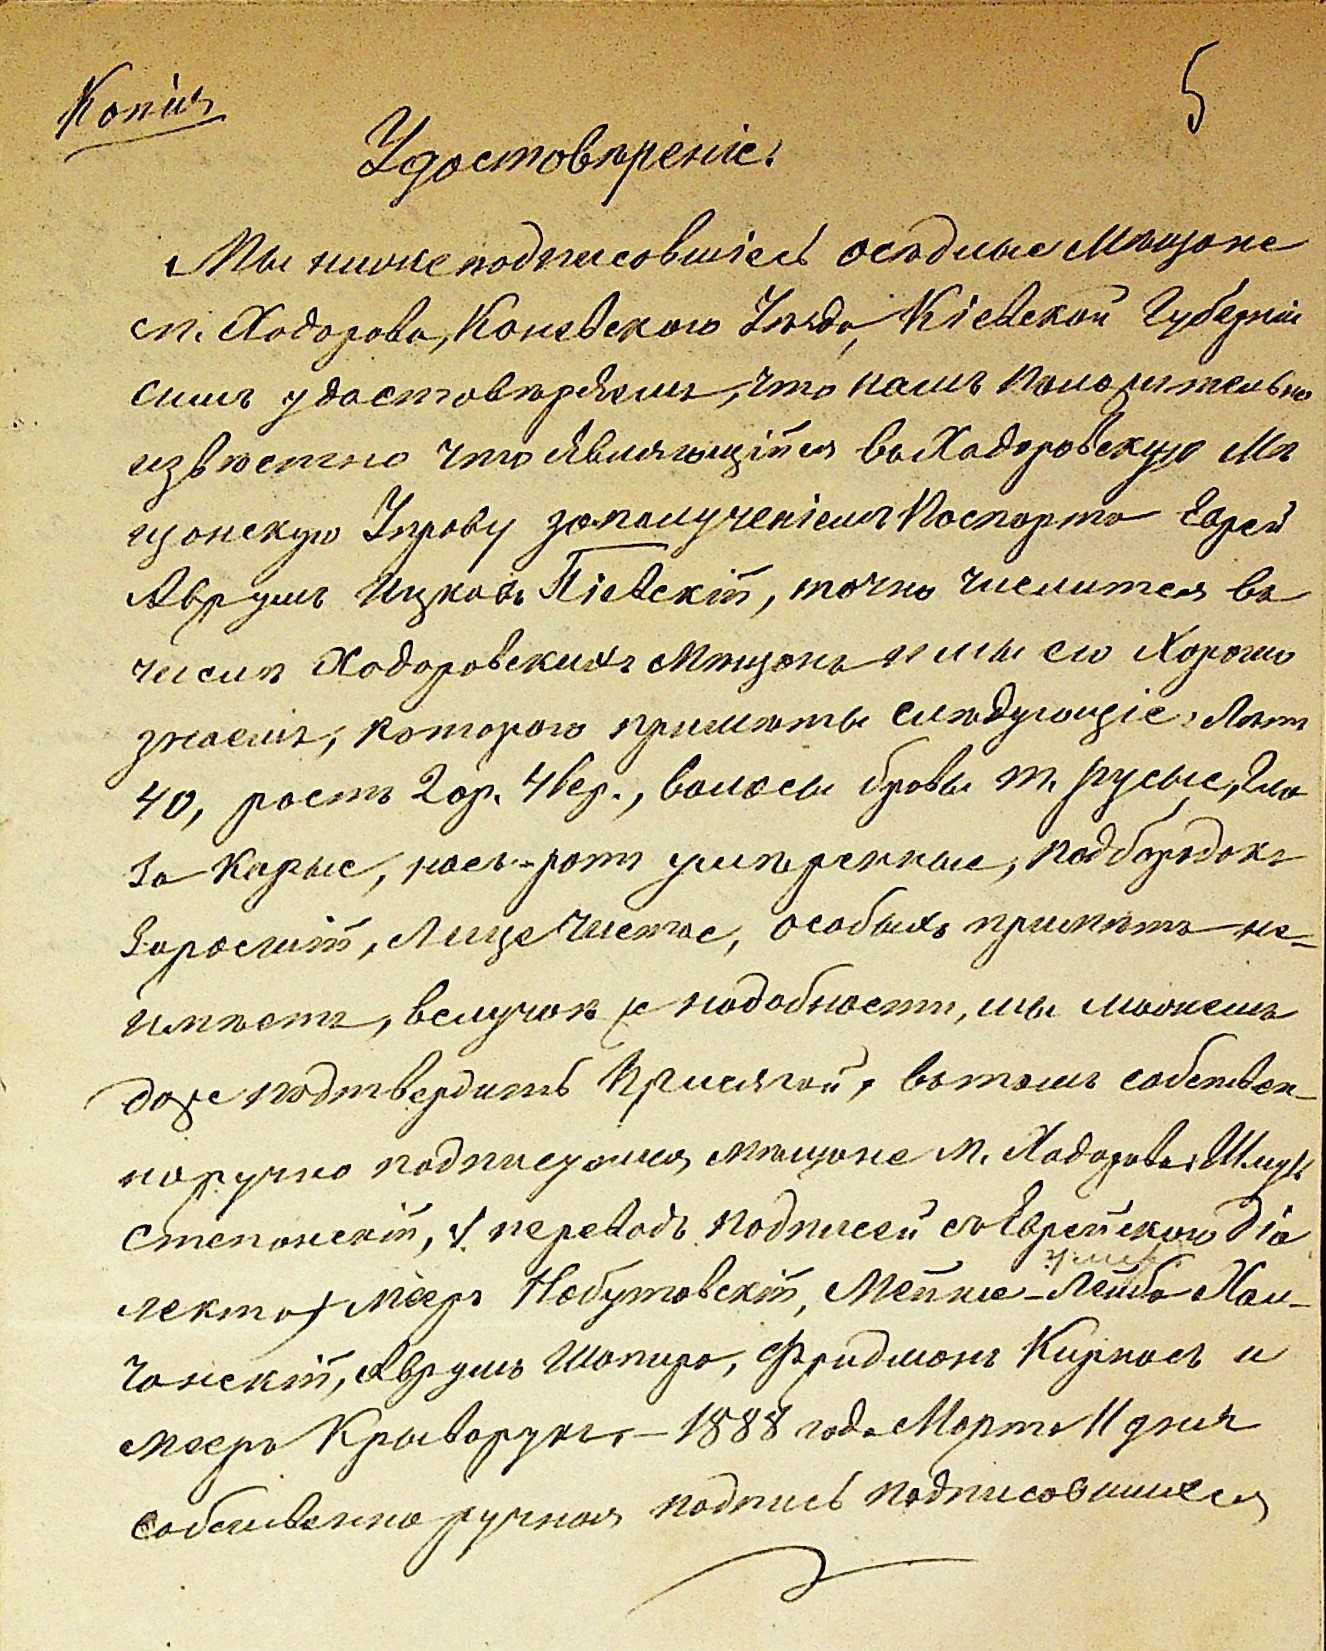 Копія
5
Удостовѣреніе.
Мы нижеподписовшіесь осѣдлые Мѣщоне
м. Ходорова, Коневского Уѣзда, Кіевской Губерніи
симъ удостовѣряемъ, что намъ положительно
извѣстно что Являющійся въ Ходоровскую Мѣ
щонскую Управу заполученіемъ Поспорта Еврей
Аврумъ Ицковъ Пієвскій, точно числится въ
числѣ Ходоровскихъ мѣщонъ и мы его Хорошо
знаемъ, которого примѣты слѣдующіе: Лѣтъ
40, ростъ 2 ар. 4 вер., волосы бровы т. русые, Гла
за Карые, носъ-ротъ умѣренные, подбородокъ
Зарослій, Лице Чистое, особыхъ примѣтъ не-
имѣетъ, вслучоѣ же надобности, мы можемъ
даже подтвердить Присягой, вътомъ собствен-
норучно подписуемся мѣщоне м. Ходорова: Шмуль
Степонскій, / переводъ подписей съ Еврейского діа
лекта / Мееръ Небутовскій, Лейба Хал-
чонскій, Аврумъ Шопиро, Фридмонъ Кирносъ и
Мееръ Крыворукъ. – 1888 года Марта 11 дня
собственноручноя подпись подписовшихся